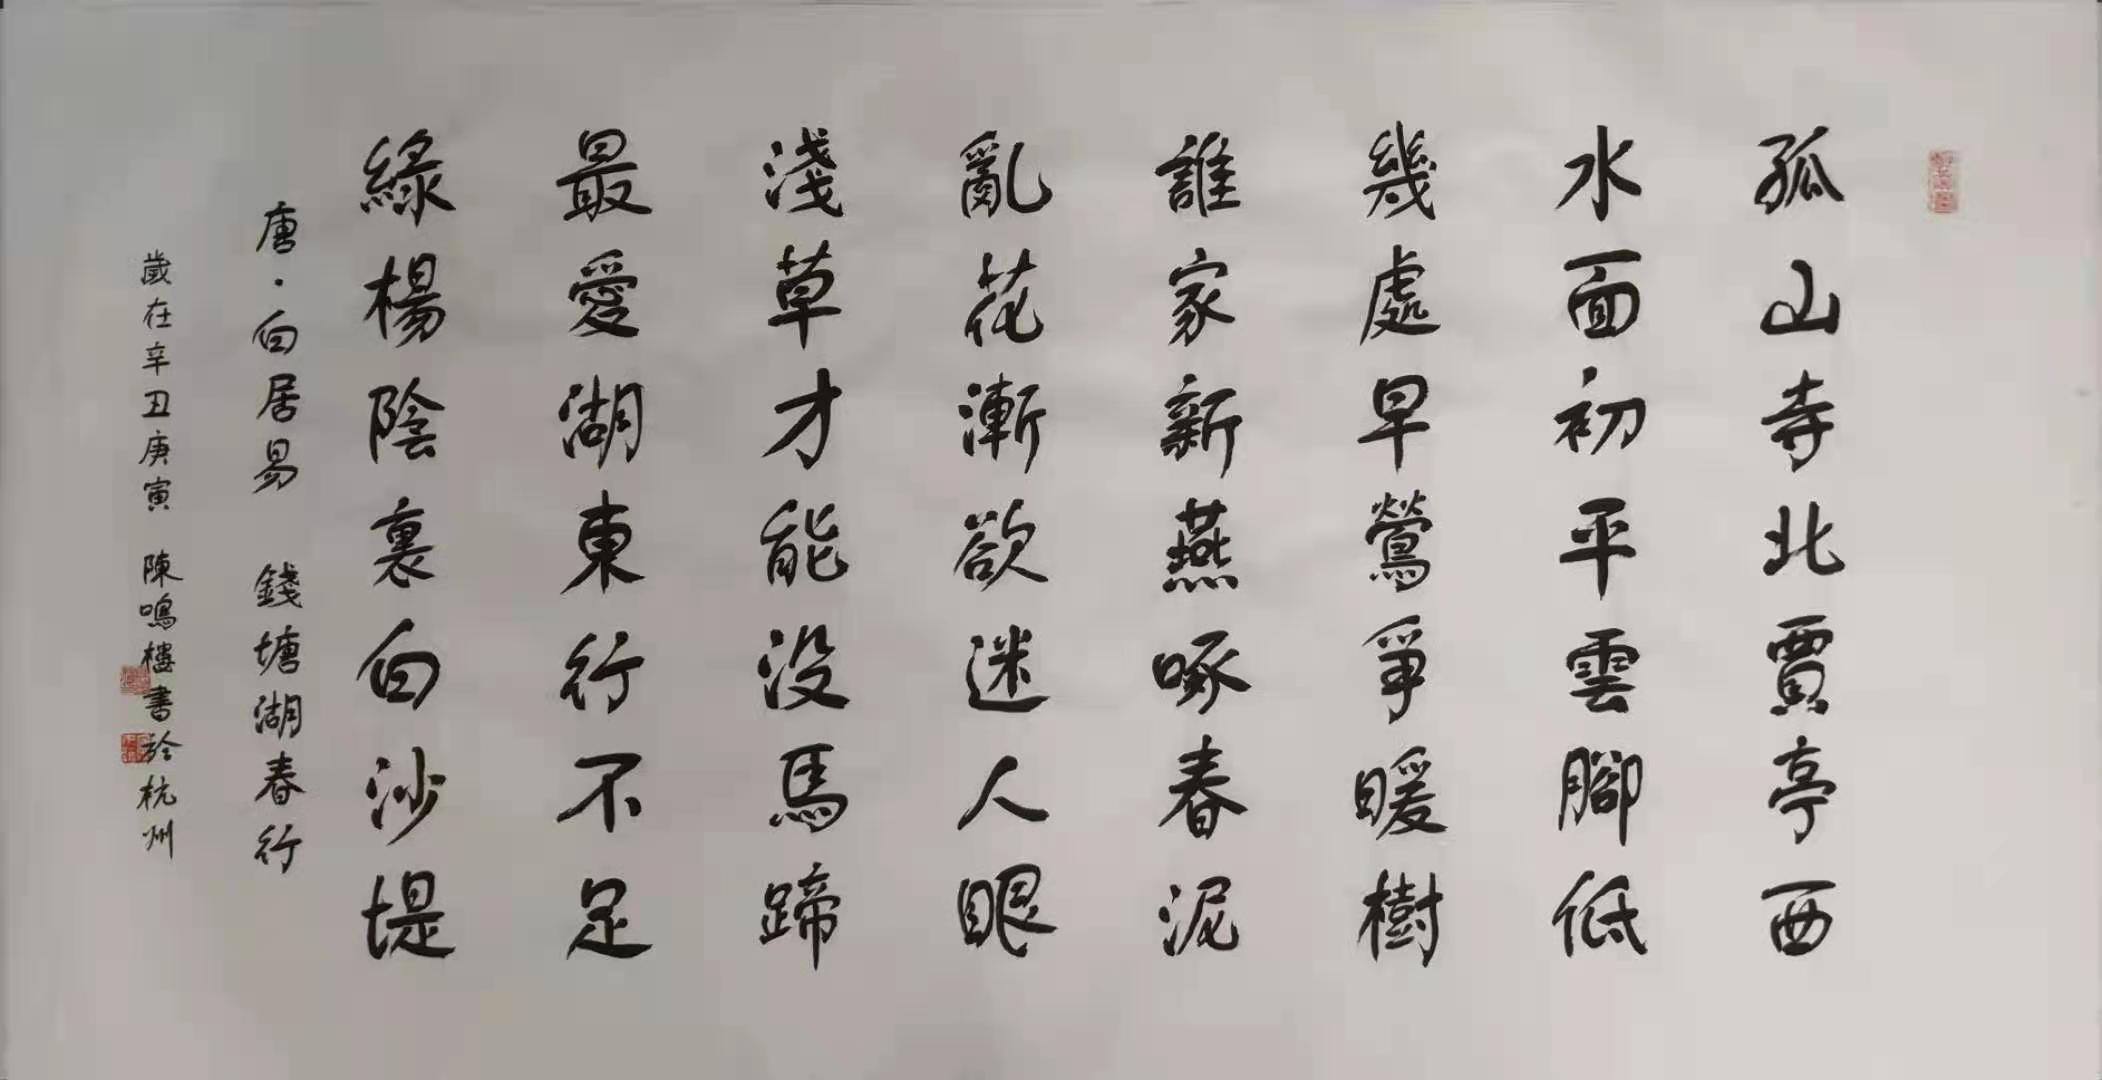 孤山寺北賈亭西
水面初平雲腳低
幾處早鶯爭暖樹
誰家新燕啄春泥
亂花漸欲迷人眼
淺草才能沒馬蹄
最愛湖東行不足
綠楊陰裏白沙堤
唐·白居易 錢塘湖春行
歲在辛丑庚寅 陳鳴樓書於杭州